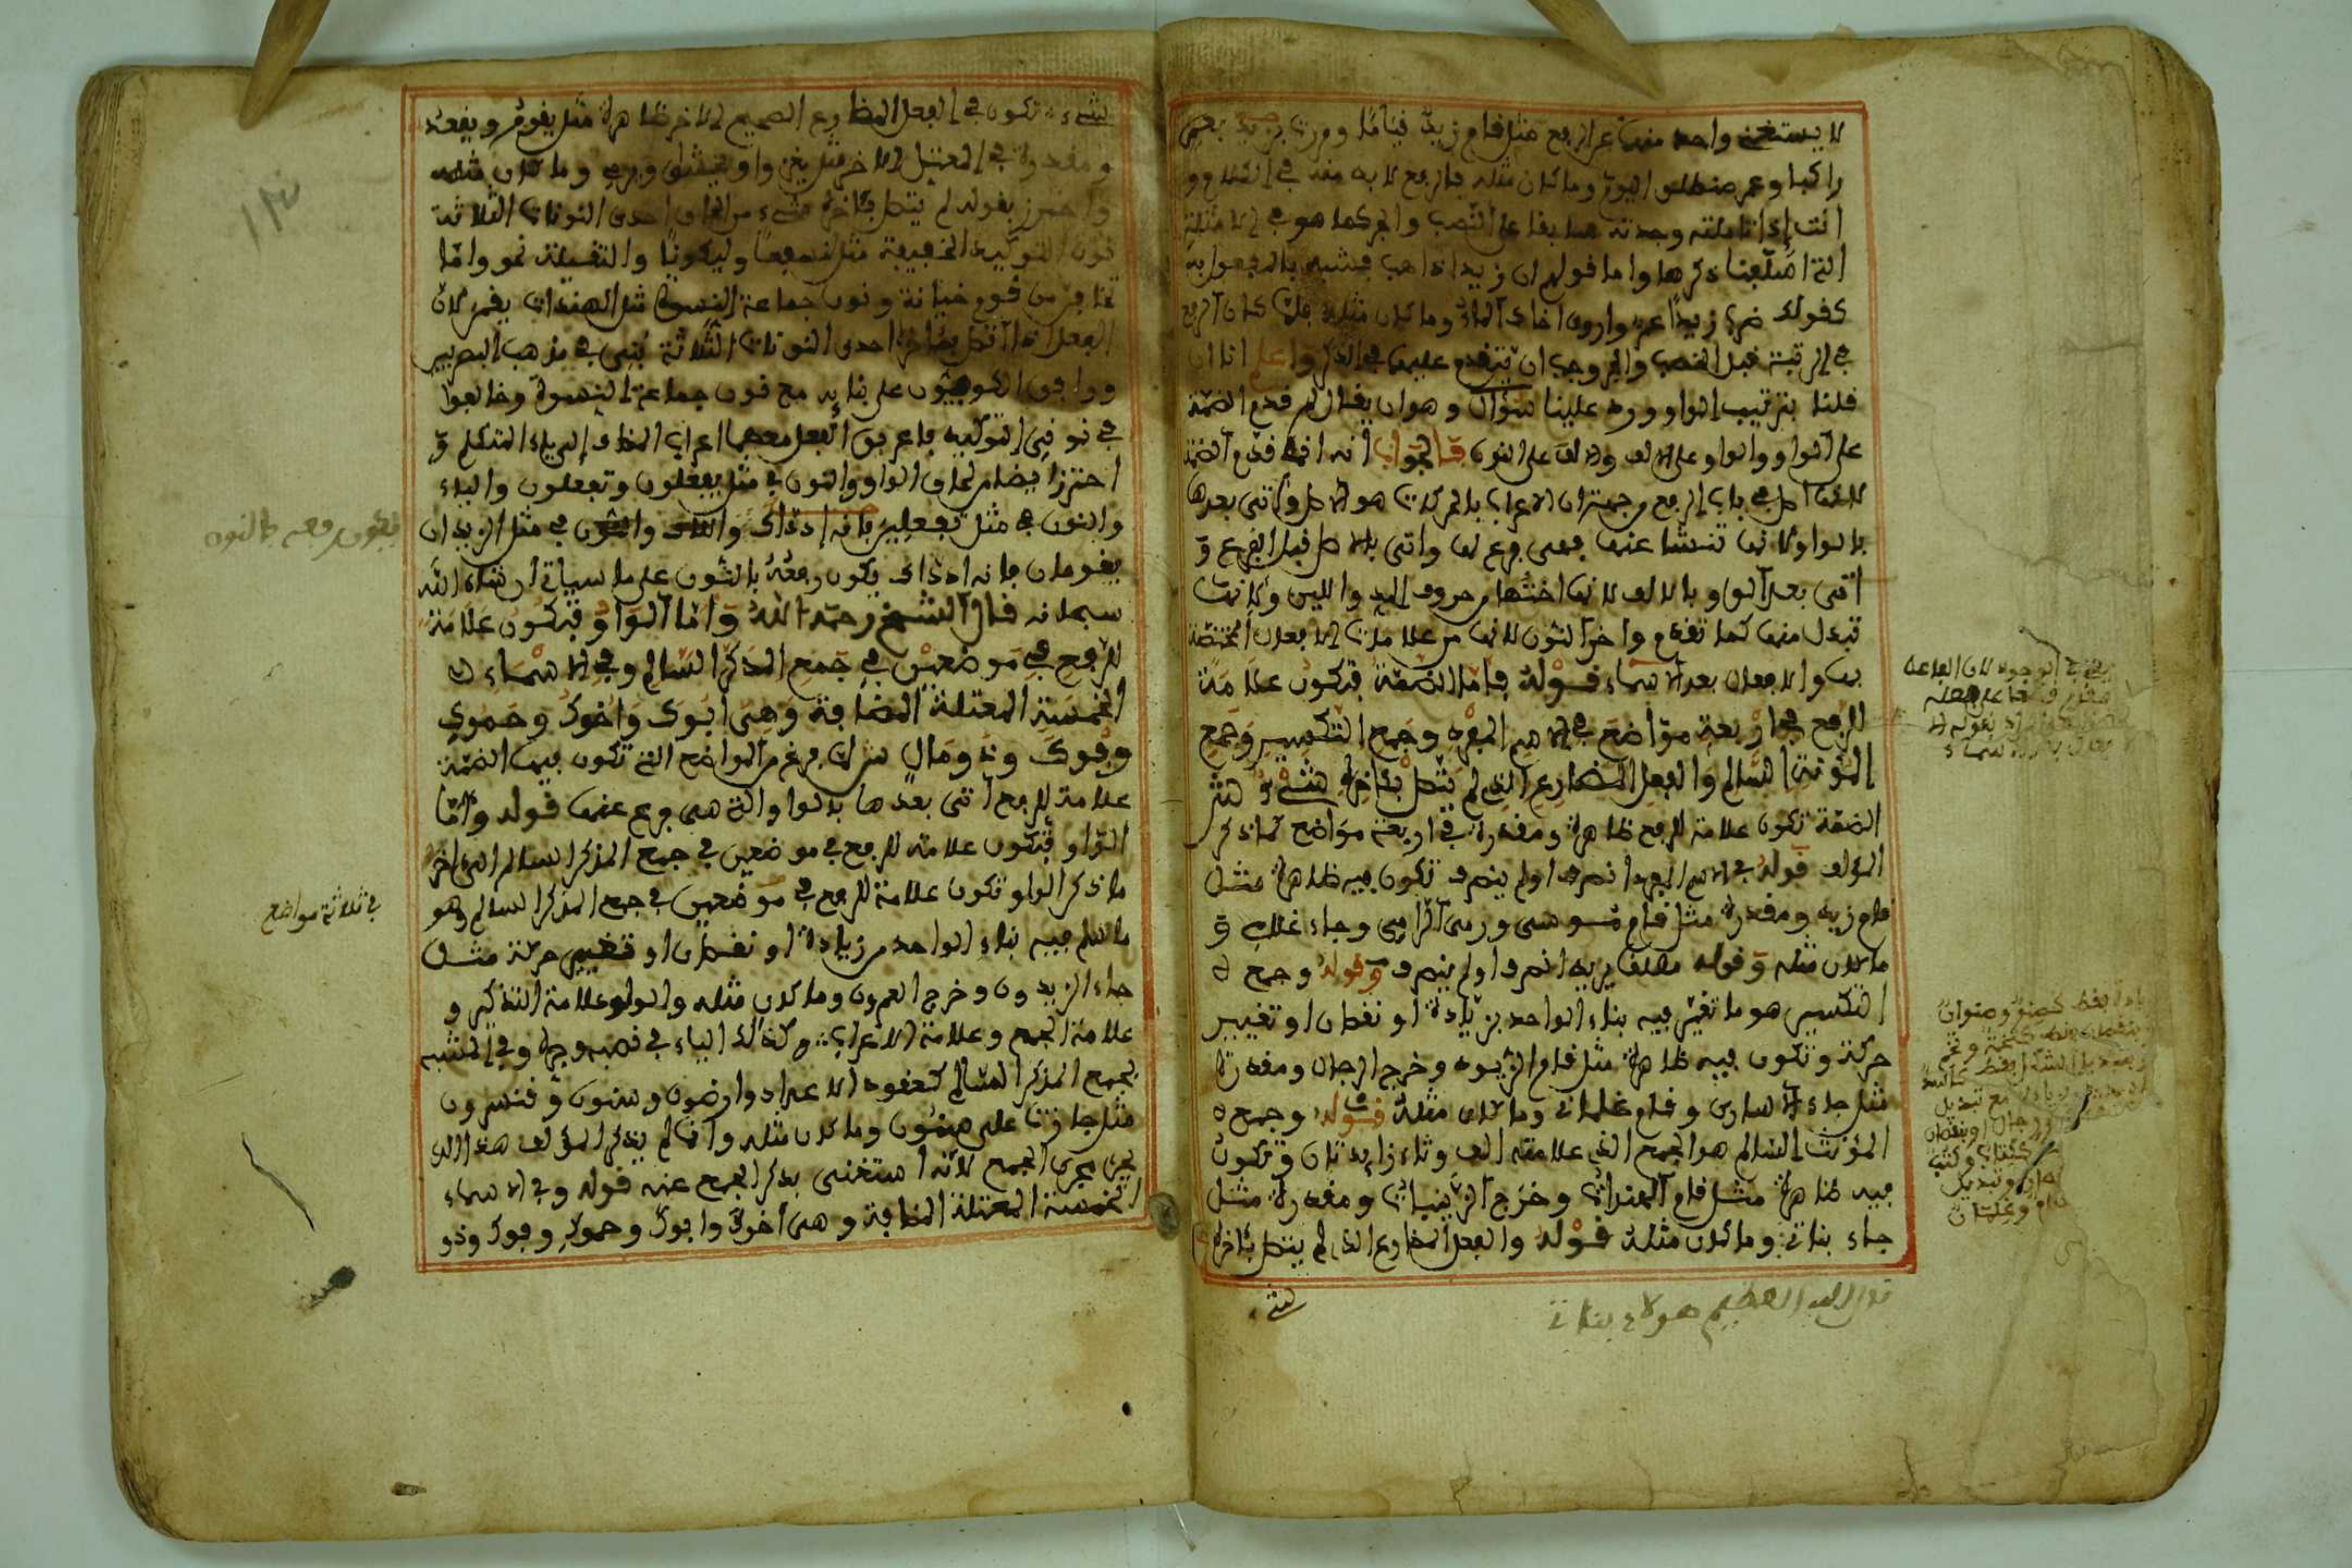 لا يستغنى واحد منها عن الرفع مثل قام زيد قياما ومررت بزيد
راكبا وعمر منطلق اليوم وما كان مثله فالرفع لا بد منه في الكلام و
أنت إذا تأملته وجدته سابقا على النصب والجر كما هو في الأمثلة
التي ذكرها واما قولهم ان زيدا ذاهب فمشبه بالمفعول به
كقولك ضرب زيدا عمر وما كان مثله فلما كان الرفع
في الرتبة قبل النصب والجر وجب ان يتقدم عليهما في الذكر واعلم انا ان
قلنا بترتيب الواو ورد علينا سؤال وهو ان يقال لم قدم الضمة
على الواو والواو على الالف والالف على النون فالجواب انه انما قدم الضمة
لانها اصل في باب الرفع من جهة ان الاعراب بالحركات هو الاصل واتى بعدها
بالواو لانها تنشا عنها فهى فرع لها واتى بالاصل قبل الفرع و
اتى بعد الواو بالالف لانها اختها من حروف المد واللين ولانها
تبدل منها كما تقدم واخر النون لانها من علامات الافعال المختصة
بها والافعال بعد الاسماء قوله فاما الضمة فتكون علامة
للرفع في اربعة مواضع في الاسم المفرد وجمع التكسير وجمع
المؤنث السالم والفعل المضارع الذي لم يتصل بئاخره شيء ش
الضمة تكون علامة للرفع ظاهرة ومقدرة في اربعة مواضع كما ذكر
المؤلف قوله في الاسم المفرد انصرف او لم ينصرف تكون فيه ظاهرة مثل
قام زيد ومقدرة مثل قام موسى ورمى الرامى وجاء غلامي و
ما كان مثله وقوله مطلقا يريد انصرف او لم ينصرف وقوله وجمع
التكسير هو ما تغير فيه بناء الواحد بزيادة او نقصان او تغيير
حركة وتكون فيه ظاهرة مثل قام الزيود وخرج الرجال ومقدرة
مثل جاء الاسارى وقام غلمانى وما كان مثله قوله وجمع
المؤنث السالم هو الجمع الذي علامته الف وتاء زايدتان وتكون
فيه ظاهرة مثل قام الهندات وخرج الزينبات ومقدرة مثل
جاء بناتي وما كان مثله قوله والفعل المضارع الذي لم يتصل بئاخره
شيء
هولاء بناتي
شيء تكون في الفعل المضارع الصحيح الاخر ظاهرة مثل يقوم ويقعد
ومقدرة في المعتل الاخر مثل يغزوا ويخشى ويرمي وما كان مثله
واحترز بقوله لم يتصل بئاخره شيء من لحاق احدى النونات الثلاثة
نون التوكيد الخفيفة مثل لنسفعا وليكونا والثقيلة نحو واما
تخافن من قوم خيانة ونون جماعة النسوة مثل الهندات يقمن لان
الفعل اذا اتصل بئاخره احدى النونات الثلاثة بني في مذهب البصريين
ووافق الكوفيون على بنايه مع نون جماعة النسوة وخالفوا
في نونى التوكيد فاعرب الفعل معهما اعراب المضاف الى ياء المتكلم و
احترز ايضا من لحاق الواو والنون في مثل يفعلون وتفعلون والياء
والنون في مثل تفعلين فانه اذ ذاك والالف والنون في مثل الزيدان
يقومان فانه اذ ذاك يكون رفعه بالنون على ما سياتي ان شاء الله
سبحانه قال الشيخ رحمه الله واما الواو فتكون علامة
للرفع في موضعين في جمع المذكر السالم وفي الاسماء
الخمسة المعتلة المضافة وهي ابوك واخوك وحموك
وفوك وذو مال ش لما فرغ من المواضع التي تكون فيها الضمة
علامة للرفع اتى بعدها بالواو التي هي فرع عنها قوله واما
الواو فتكون علامة للرفع في موضعين في جمع المذكر السالم الى اخر
ما ذكر الواو تكون علامة للرفع في موضعين في جمع المذكر السالم وهو
ما سلم فيه بناء الواحد من زيادة او نقصان او تغيير حركة مثل
جاء الزيدون وخرج العمرون وما كان مثله والواو علامة التذكير و
علامة الجمع وعلامة الاعراب وكذالك الياء في نصبه وجره وفي المشبه
بجمع المذكر السالم كعقود الاعداد وارضون وسنون وقنسرون
مثل جازت عليه سنون وما كان مثله وانما لم يذكر المؤلف هذا الذي
يجري مجرى الجمع لانه استغنى بذكر الجمع عنه قوله وفي الاسماء
الخمسة المعتلة المضافة وهي اخوك وابوك وحموك وفوك وذو
يكون رفعه بالنون
في ثلاثة مواضع